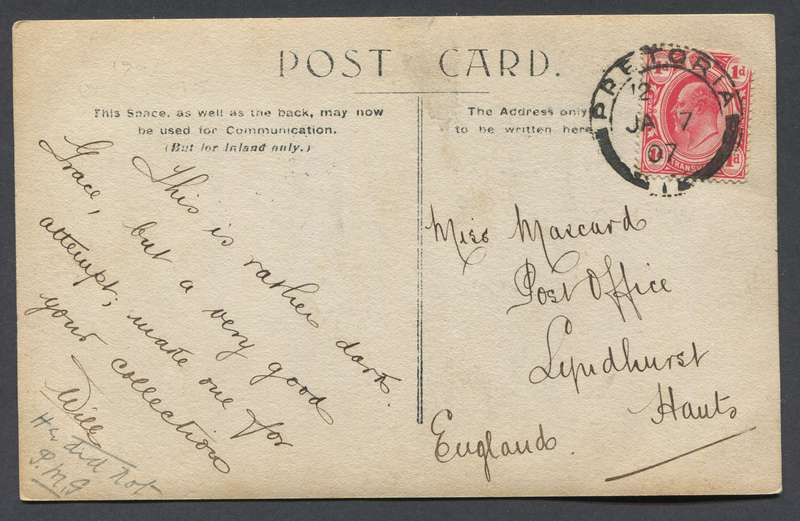 POST CARD.
This Space, as well as the back, may now
be used for Communication.
(But for Inland only.)
The Address only
to be written here
PRETORIA
12
JA 17
07
1d 1d
TRANSV
1d
This is rather dark
Grace, but a very good
attempt; make one for
your collection
Will
P.M.G
Miss Mascard
Post Office
Lyndhurst
Hants
England.